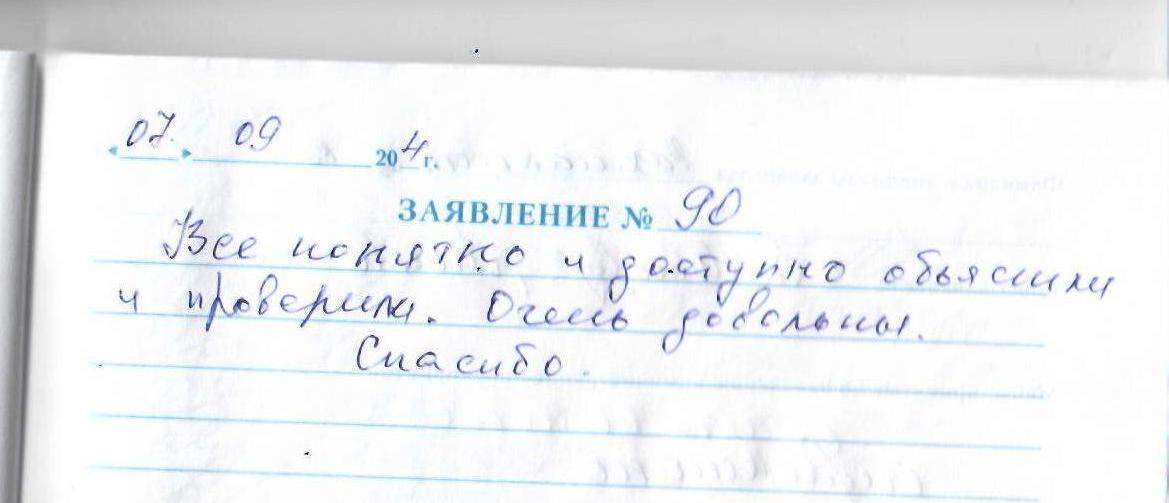 «07.» 09 204г.
ЗАЯВЛЕНИЕ № 90
Все понятно и доступно объяснили
и проверили. Очень довольны.
Спасибо.